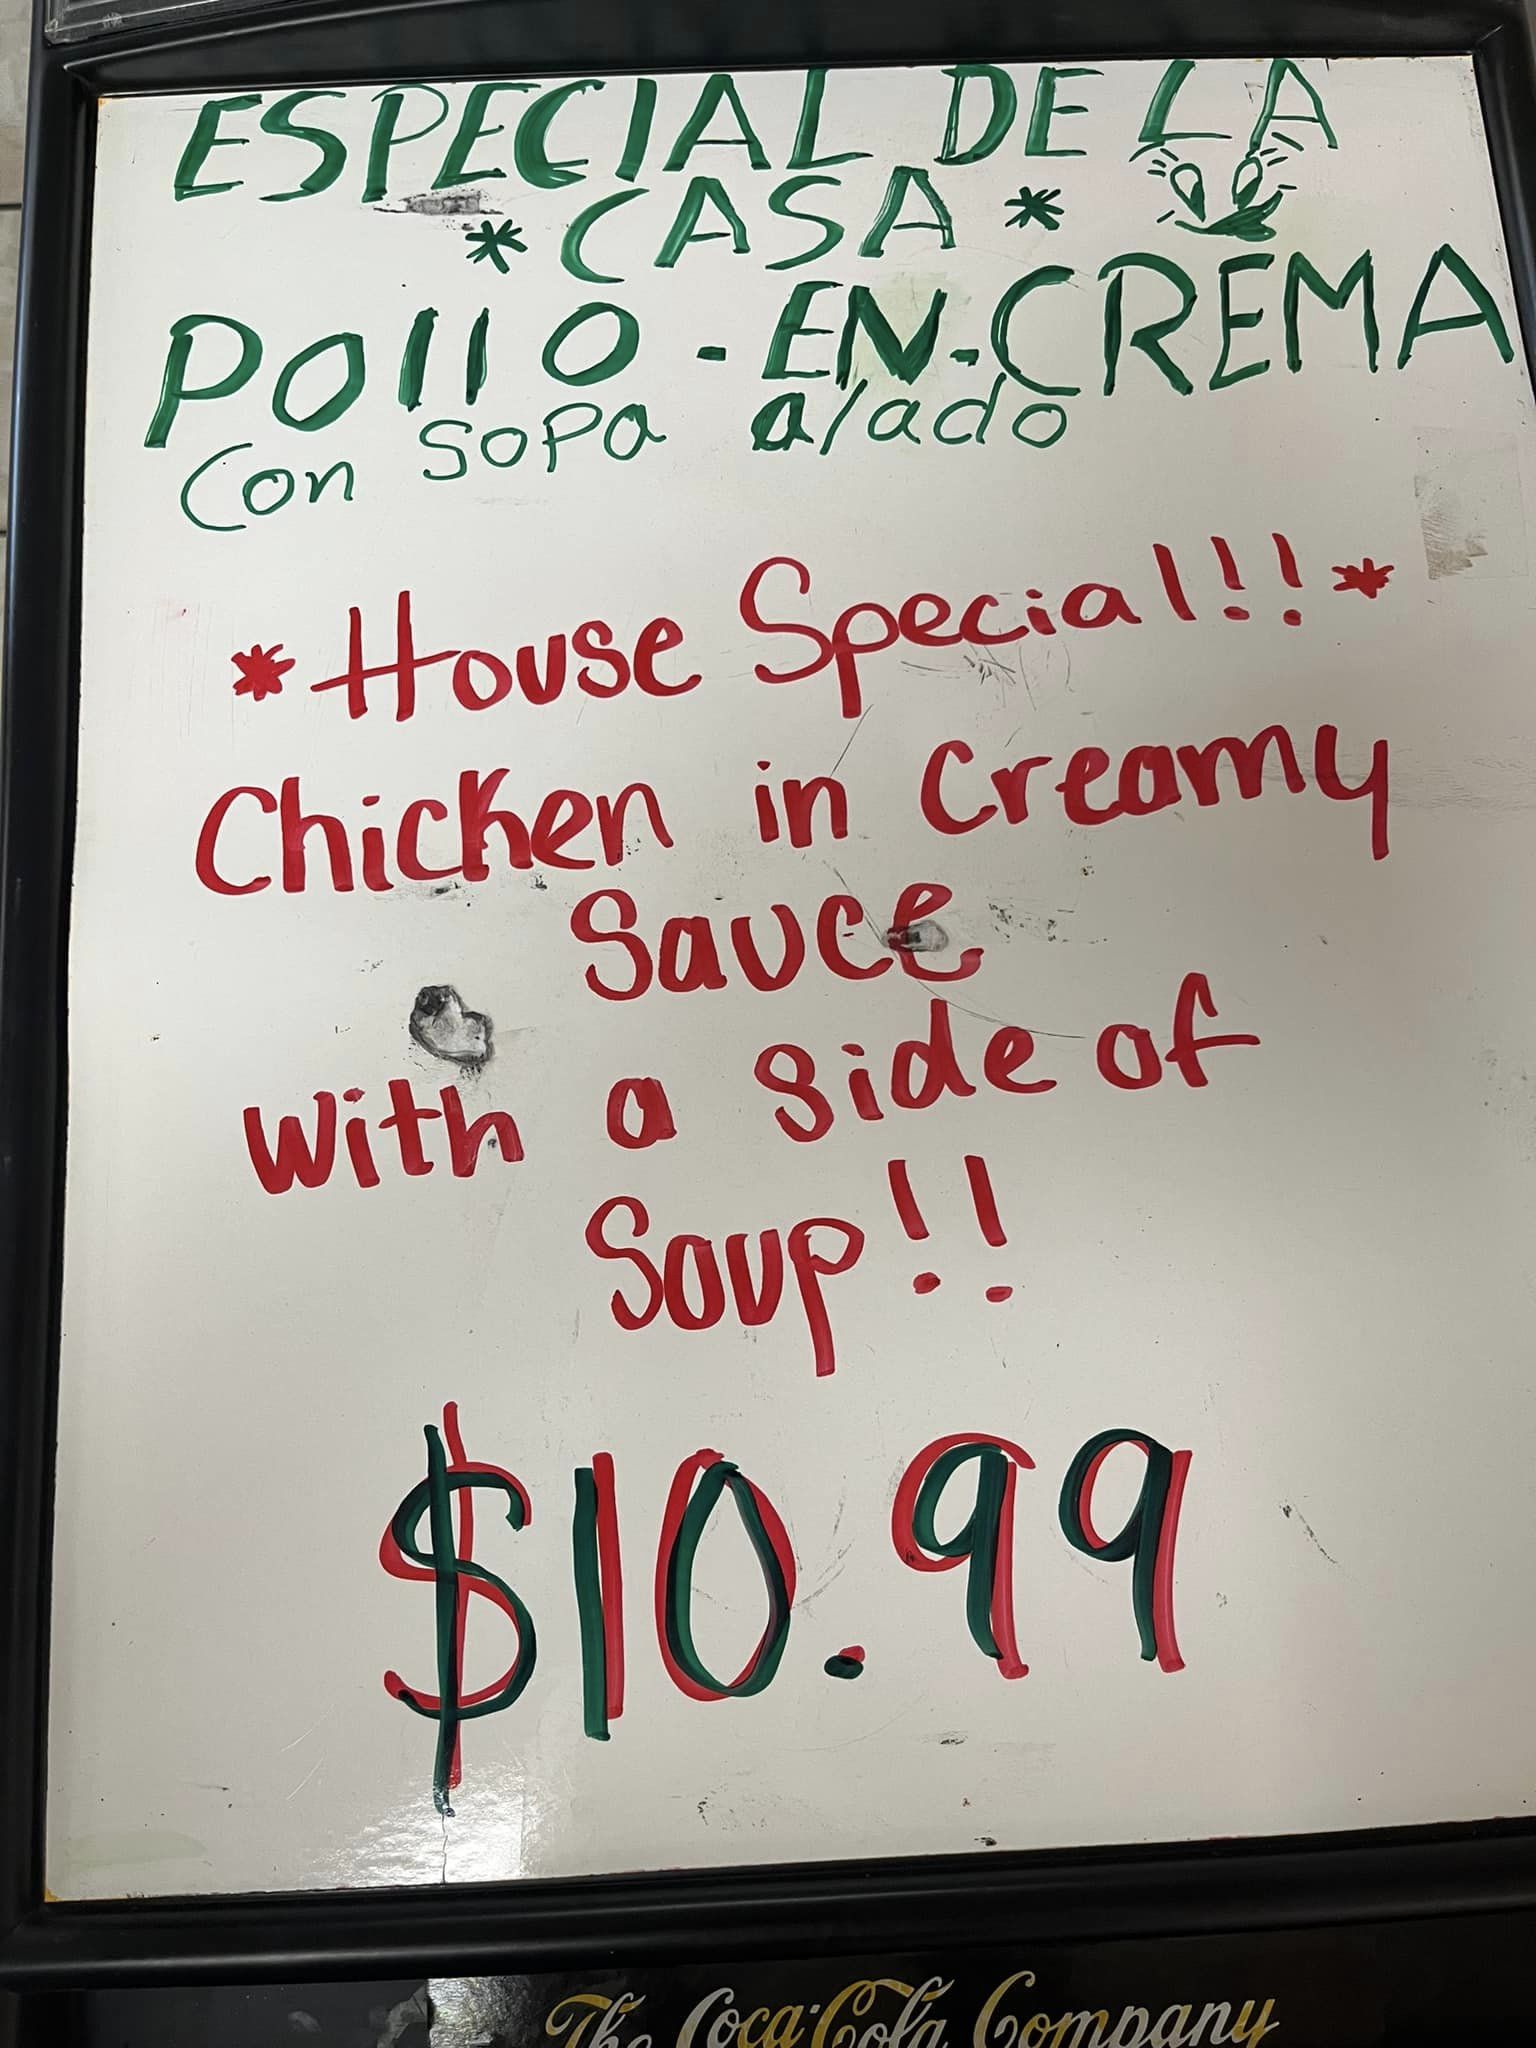 ESPECIAL DE LA
* CASA *
POllO - EN - CREMA
Con SOPa a/ado
*House Special!!!*
Chicken in Creamy
Sauce
With a side of
Soup!!
$10.99
The Coca-Cola Company